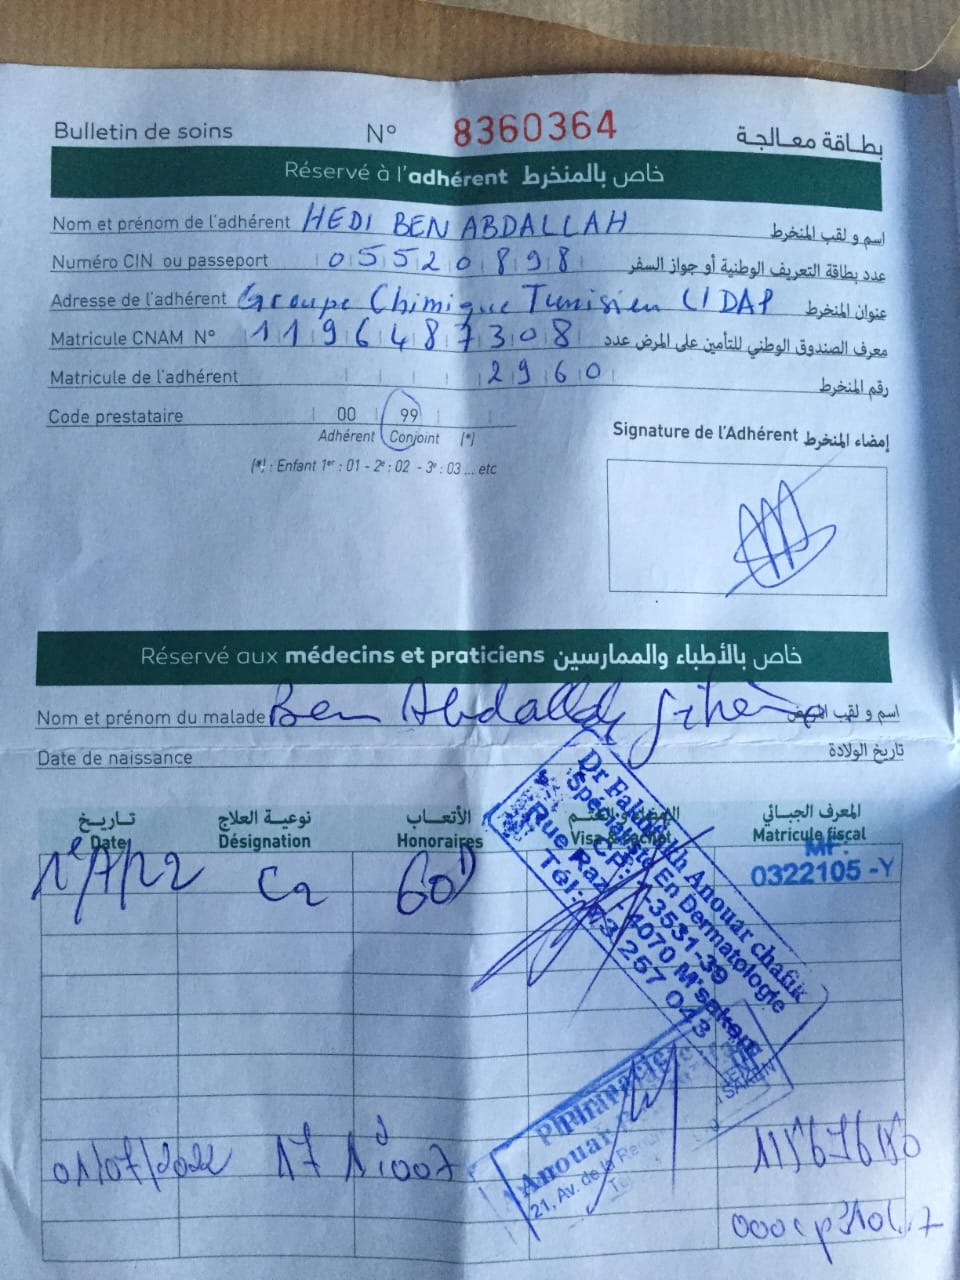 Bulletin de soins N° 8360364 بطاقة معالجة
Réservé à l'adhérent خاص بالمنخرط
Nom et prénom de l'adhérent HEDI BEN ABDALLAH اسم و لقب المنخرط
Numéro CIN ou passeport 05520898 عدد بطاقة التعريف الوطنية أو جواز السفر
Adresse de l'adhérent Groupe Chimique Tunisien عنوان المنخرط
Matricule CNAM N° 1196487308 معرف الصندوق الوطني للتأمين على المرض عدد
Matricule de l'adhérent 2960 رقم المنخرط
Code prestataire 00 99
Adhérent Conjoint (*)
(*) : Enfant 1er : 01 - 2e : 02 - 3e : 03 ... etc
Signature de l'Adhérent إمضاء المنخرط
Réservé aux médecins et praticiens خاص بالأطباء والممارسين
Nom et prénom du malade Ben Abdallah Jihen اسم و لقب
Date de naissance تاريخ الولادة
تاريخ نوعية العلاج الأتعاب المعرف الجبائي
Date Désignation Honoraires Visa Matricule fiscal
C2 60D MF:
0322105-Y
Dr Anouar chafik
Spécialiste En Dermatologie
-3531-39
Rue 4070 M'saken
Tél: 73 257 043
Anouar
21, Av. de la
01/07/2022 17